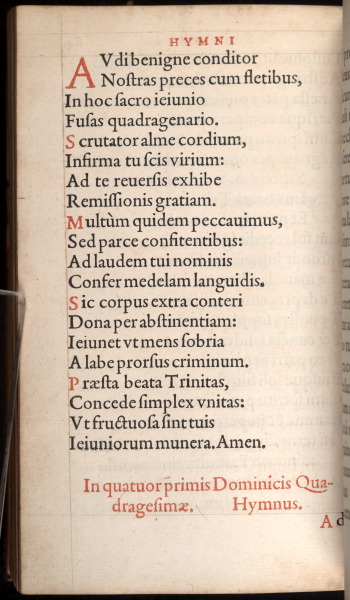 HYMNI
AVdi benigne conditor
Noſtras preces cum fletibus,
In hoc ſacro ieiunio
Fuſas quadragenario.
Scrutator alme cordium,
Infirma tu ſcis virium:
Ad te reuerſis exhibe
Remiſſionis gratiam.
Multùm quidem peccauimus,
Sed parce confitentibus:
Ad laudem tui nominis
Confer medelam languidis.
Sic corpus extra conteri
Dona per abſtinentiam:
Ieiunet vt mens ſobria
A labe prorſus criminum.
Præſta beata Trinitas,
Concede ſimplex vnitas:
Vt fructuoſa ſint tuis
Ieiuniorum munera. Amen.
In quatuor primis Dominicis Qua-
drageſimæ. Hymnus.
A d